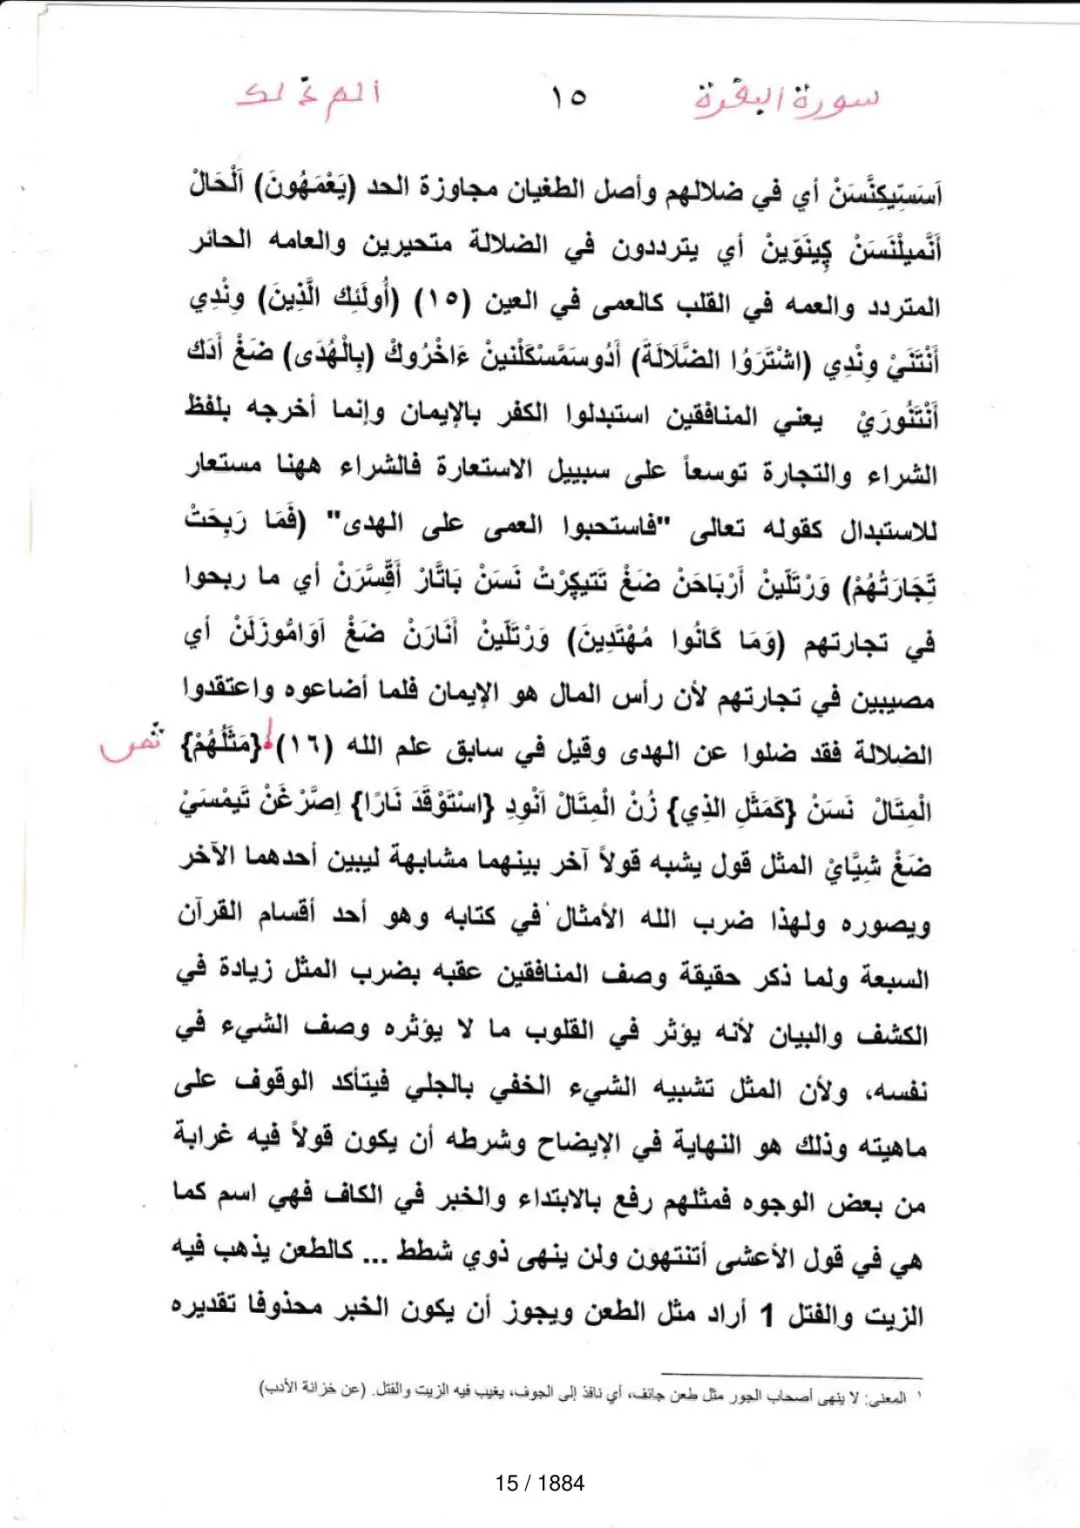 سورة البقرة ١٥ الم
اَسَسَتِيكِنَّسَنْ أي في ضلالهم وأصل الطغيان مجاوزة الحد (يَعْمَهُونَ) اَلْحَالْ
أَنَّمِيلْنَسَنْ كِينَوّينْ أي يترددون في الضلالة متحيرين والعامه الحائر
المتردد والعمه في القلب كالعمى في العين (١٥) (أُولَئِك الَّذِينَ) وِنْدِي
أَنْتَنَيْ وِنْدِي (اشْتَرَوُا الضَّلَالَةَ) أَدُوسَمَّسْكَلْنينْ ءَاخْرُوكْ (بِالْهُدَى) ضَغْ أَدَك
أَنْتَنُورَيْ يعني المنافقين استبدلوا الكفر بالإيمان وإنما أخرجه بلفظ
الشراء والتجارة توسعاً على سبييل الاستعارة فالشراء ههنا مستعار
للاستبدال كقوله تعالى "فاستحبوا العمى على الهدى" (فَمَا رَبِحَتْ
تِّجَارَتُهُمْ) وَرْتَلِّينْ أَرْبَاحَنْ ضَغْ تَتيكِرْتْ نَسَنْ بَاتَّارْ أَقِّسَّرَنْ أي ما ربحوا
في تجارتهم (وَمَا كَانُوا مُهْتَدِينَ) وَرْتَلِّينْ أَنَارَنْ ضَغْ اَوَامُّوزَلَنْ أي
مصيبين في تجارتهم لأن رأس المال هو الإيمان فلما أضاعوه واعتقدوا
الضلالة فقد ضلوا عن الهدى وقيل في سابق علم الله (١٦) {مَثَلُهُمْ}
الْمِتَالْ نَسَنْ {كَمَثَلِ الذِي} زُنْ الْمِتَالْ اَنْوِد {اسْتَوْقَدَ نَارًا} اِصَّرْغَنْ تَيمْسَيْ
ضَغْ شِيَّايْ المثل قول يشبه قولاً آخر بينهما مشابهة ليبين أحدهما الآخر
ويصوره ولهذا ضرب الله الأمثال في كتابه وهو أحد أقسام القرآن
السبعة ولما ذكر حقيقة وصف المنافقين عقبه بضرب المثل زيادة في
الكشف والبيان لأنه يؤثر في القلوب ما لا يؤثره وصف الشيء في
نفسه، ولأن المثل تشبيه الشيء الخفي بالجلي فيتأكد الوقوف على
ماهيته وذلك هو النهاية في الإيضاح وشرطه أن يكون قولاً فيه غرابة
من بعض الوجوه فمثلهم رفع بالابتداء والخبر في الكاف فهي اسم كما
هي في قول الأعشى أتنتهون ولن ينهى ذوي شطط ... كالطعن يذهب فيه
الزيت والفتل 1 أراد مثل الطعن ويجوز أن يكون الخبر محذوفا تقديره
١ المعنى: لا ينهى أصحاب الجور مثل طعن جائف، أي نافذ إلى الجوف، يغيب فيه الزيت والفتل. (عن خزانة الأدب)
15 / 1884